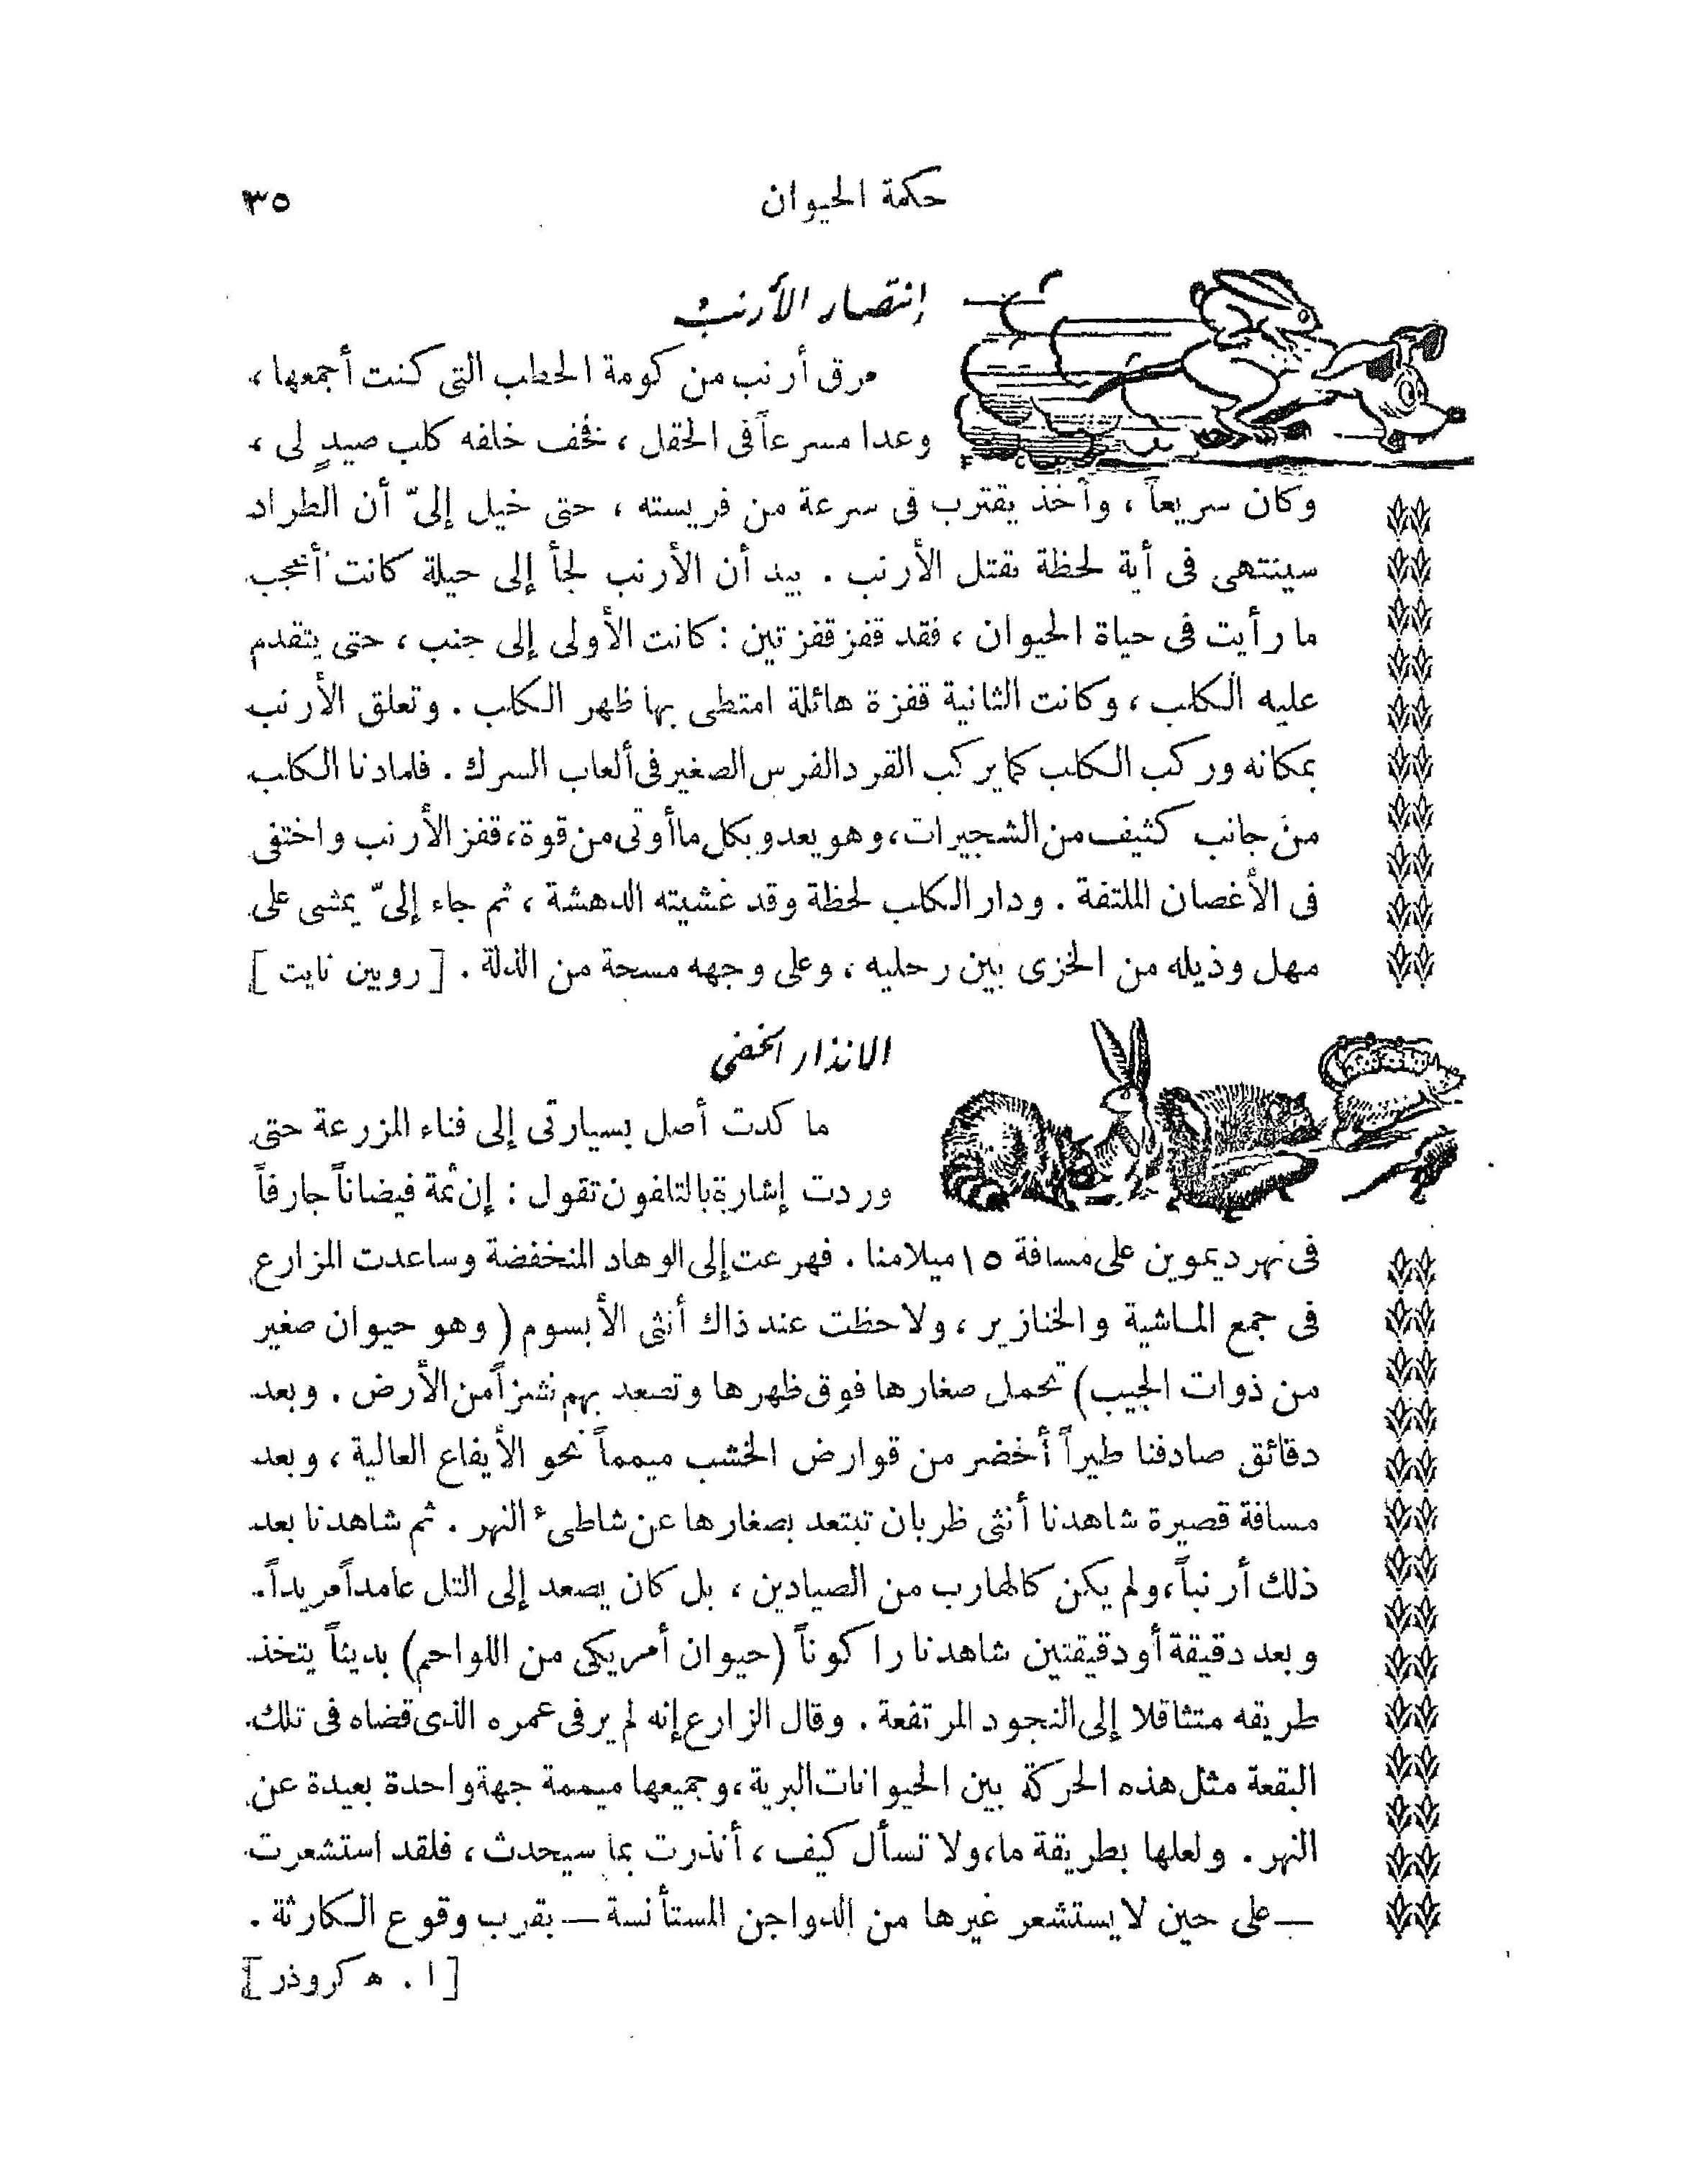 حكمة الحيوان
٣٥
إنتصار الأرنب
مرق أرنب من كومة الحطب التى كنت أجمعها ،
وعدا مسرعاً فى الحقل ، فخف خلفه كلب صيدٍ لى ،
وكان سريعاً ، وأخذ يقترب فى سرعة من فريسته ، حتى خيل إلىّ أن الطراد
سينتهى فى أية لحظة بقتل الأرنب . بيد أن الأرنب لجأ إلى حيلة كانت أعجب
ما رأيت فى حياة الحيوان ، فقد قفز قفزتين : كانت الأولى إلى جنب ، حتى يتقدم
عليه الكلب ، وكانت الثانية قفزة هائلة امتطى بها ظهر الكلب . وتعلق الأرنب
بمكانه وركب الكلب كما يركب القرد الفرس الصغير فى ألعاب السرك . فلما دنا الكلب
من جانب كثيف من الشجيرات ، وهو يعدو بكل ما أوتى من قوة ، قفز الأرنب واختفى
فى الأغصان الملتفة . ودار الكلب لحظة وقد غشيته الدهشة ، ثم جاء إلىّ يمشى على
مهل وذيله من الخزى بين رجليه ، وعلى وجهه مسحة من الذلة . [ روبين نايت ]
الانذار الخفى
ما كدت أصل بسيارتى إلى فناء المزرعة حتى
وردت إشارة بالتلفون تقول : إن ثمة فيضاناً جارفاً
فى نهر ديموين على مسافة ١٥ ميلا منا . فهرعت إلى الوهاد المنخفضة وساعدت المزارع
فى جمع الماشية والخنازير ، ولاحظت عند ذاك أنثى الأبسوم ( وهو حيوان صغير
من ذوات الجيب ) تحمل صغارها فوق ظهرها وتصعد بهم نشزاً من الأرض . وبعد
دقائق صادفنا طيراً أخضر من قوارض الخشب ميمماً نحو الأيفاع العالية ، وبعد
مسافة قصيرة شاهدنا أنثى ظربان تبتعد بصغارها عن شاطىء النهر . ثم شاهدنا بعد
ذلك أرنباً ، ولم يكن كالهارب من الصيادين ، بل كان يصعد إلى التل عامداً مريداً .
وبعد دقيقة أو دقيقتين شاهدنا راكوناً ( حيوان أمريكى من اللواحم ) بديناً يتخذ
طريقه متثاقلا إلى النجود المرتفعة . وقال الزارع إنه لم ير فى عمره الذى قضاه فى تلك
البقعة مثل هذه الحركة بين الحيوانات البرية ، وجميعها ميممة جهة واحدة بعيدة عن
النهر . ولعلها بطريقة ما ، ولا تسأل كيف ، أنذرت بما سيحدث ، فلقد استشعرت
— على حين لا يستشعر غيرها من الدواجن المستأنسة — بقرب وقوع الكارثة .
[ ا . ه كروذر ]